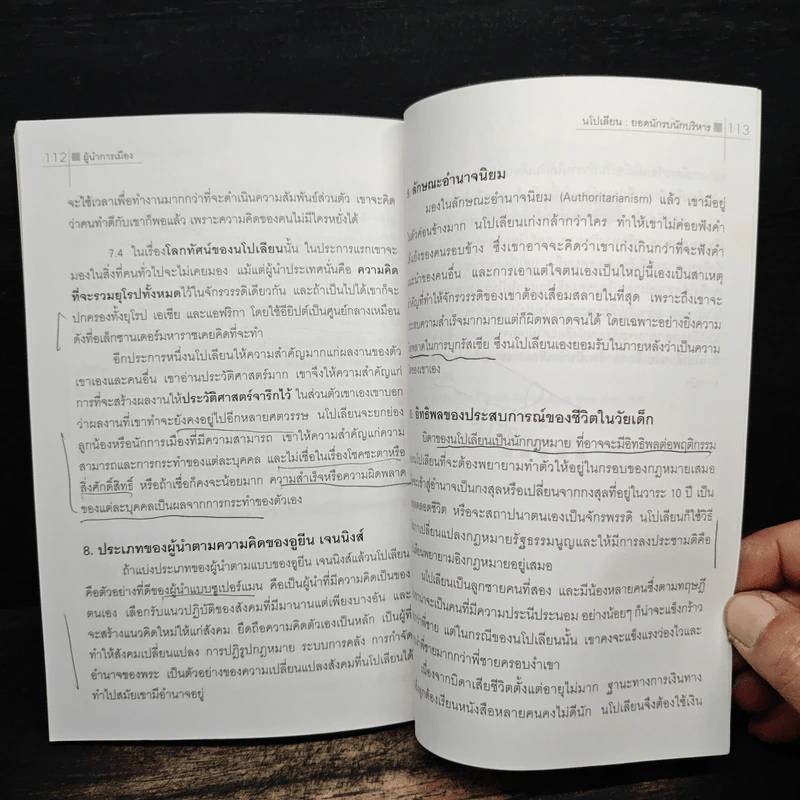 112 ■ ผู้นำการเมือง
จะใช้เวลาเพื่อทำงานมากกว่าที่จะดำเนินความสัมพันธ์ส่วนตัว เขาจะคิด
ว่าคนทำดีกับเขาก็พอแล้ว เพราะความคิดของคนไม่มีใครหยั่งได้
7.4 ในเรื่องโลกทัศน์ของนโปเลียนนั้น ในประการแรกเขาจะ
มองในสิ่งที่คนทั่วไปจะไม่เคยมอง แม้แต่ผู้นำประเทศนั่นคือ ความคิด
ที่จะรวมยุโรปทั้งหมดไว้ในจักรวรรดิเดียวกัน และถ้าเป็นไปได้เขาก็จะ
ปกครองทั้งยุโรป เอเซีย และแอฟริกา โดยใช้อียิปต์เป็นศูนย์กลางเหมือน
ดังที่อเล็กซานเดอร์มหาราชเคยคิดที่จะทำ
อีกประการหนึ่งนโปเลียนให้ความสำคัญมากแก่ผลงานของตัว
เขาเองและคนอื่น เขาอ่านประวัติศาสตร์มาก เขาจึงให้ความสำคัญแก่
การที่จะสร้างผลงานให้ประวัติศาสตร์จารึกไว้ ในส่วนตัวเขาเองเขาบอก
ว่าผลงานที่เขาทำจะยังคงอยู่ไปอีกหลายศตวรรษ นโปเลียนจะยกย่อง
ลูกน้องหรือนักการเมืองที่มีความสามารถ เขาให้ความสำคัญแก่ความ
สามารถและการกระทำของแต่ละบุคคล และไม่เชื่อในเรื่องโชคชะตาหรือ
สิ่งศักดิ์สิทธิ์ หรือถ้าเชื่อก็คงจะน้อยมาก ความสำเร็จหรือความผิดพลาด
ของแต่ละบุคคลเป็นผลจากการกระทำของตัวเอง
8. ประเภทของผู้นำตามความคิดของอูยีน เจนนิงส์
ถ้าแบ่งประเภทของผู้นำตามแบบของอูยีน เจนนิงส์แล้วนโปเลียน
คือตัวอย่างที่ดีของผู้นำแบบซูเปอร์แมน คือเป็นผู้นำที่มีความคิดเป็นของ
ตนเอง เลือกรับแนวปฏิบัติของสังคมที่มีมานานแต่เพียงบางอัน และ
จะสร้างแนวคิดใหม่ให้แก่สังคม ยึดถือความคิดตัวเองเป็นหลัก เป็นผู้ที่
ทำให้สังคมเปลี่ยนแปลง การปฏิรูปกฎหมาย ระบบการคลัง การกำจัด
อำนาจของพระ เป็นตัวอย่างของความเปลี่ยนแปลงสังคมที่นโปเลียนได้
ทำไปสมัยเขามีอำนาจอยู่
นโปเลียน : ยอดนักรบนักบริหาร ■ 113
ลักษณะอำนาจนิยม
มองในลักษณะอำนาจนิยม (Authoritarianism) แล้ว เขามีอยู่
ตัวค่อนข้างมาก นโปเลียนเก่งกล้ากว่าใคร ทำให้เขาไม่ค่อยฟังคำ
ของคนรอบข้าง ซึ่งเขาอาจจะคิดว่าเขาเก่งเกินกว่าที่จะฟังคำ
ของคนอื่น และการเอาแต่ใจตนเองเป็นใหญ่นี้เองเป็นสาเหตุ
ที่ทำให้จักรวรรดิของเขาต้องเสื่อมสลายในที่สุด เพราะถึงเขาจะ
ความสำเร็จมากมายแต่ก็ผิดพลาดจนได้ โดยเฉพาะอย่างยิ่งความ
ในการบุกรัสเซีย ซึ่งนโปเลียนเองยอมรับในภายหลังว่าเป็นความ
ของเขาเอง
อิทธิพลของประสบการณ์ของชีวิตในวัยเด็ก
บิดาของนโปเลียนเป็นนักกฎหมาย ที่อาจจะมีอิทธิพลต่อพฤติกรรม
นโปเลียนที่จะต้องพยายามทำตัวให้อยู่ในกรอบของกฎหมายเสมอ
เข้าสู่อำนาจเป็นกงสุลหรือเปลี่ยนจากกงสุลที่อยู่ในวาระ 10 ปี เป็น
ตลอดชีวิต หรือจะสถาปนาตนเองเป็นจักรพรรดิ นโปเลียนก็ใช้วิธี
เปลี่ยนแปลงกฎหมายรัฐธรรมนูญและให้มีการลงประชามติคือ
พยายามอิงกฎหมายอยู่เสมอ
นโปเลียนเป็นลูกชายคนที่สอง และมีน้องหลายคนซึ่งตามทฤษฎี
น่าจะเป็นคนที่มีความประนีประนอม อย่างน้อยๆ ก็น่าจะแข็งกร้าว
พี่ชาย แต่ในกรณีของนโปเลียนนั้น เขาคงจะแข็งแรงว่องไวและ
พี่ชายมากกว่าพี่ชายครอบงำเขา
เนื่องจากบิดาเสียชีวิตตั้งแต่อายุไม่มาก ฐานะทางการเงินทาง
ลูกต้องเรียนหนังสือหลายคนคงไม่ดีนัก นโปเลียนจึงต้องใช้เงิน